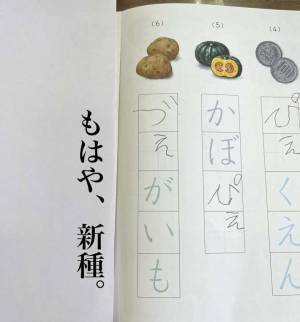 (4)
ぴぇくえん
(5)
かぼぴぇ
(6)
づぇがいも
もはや、新種。